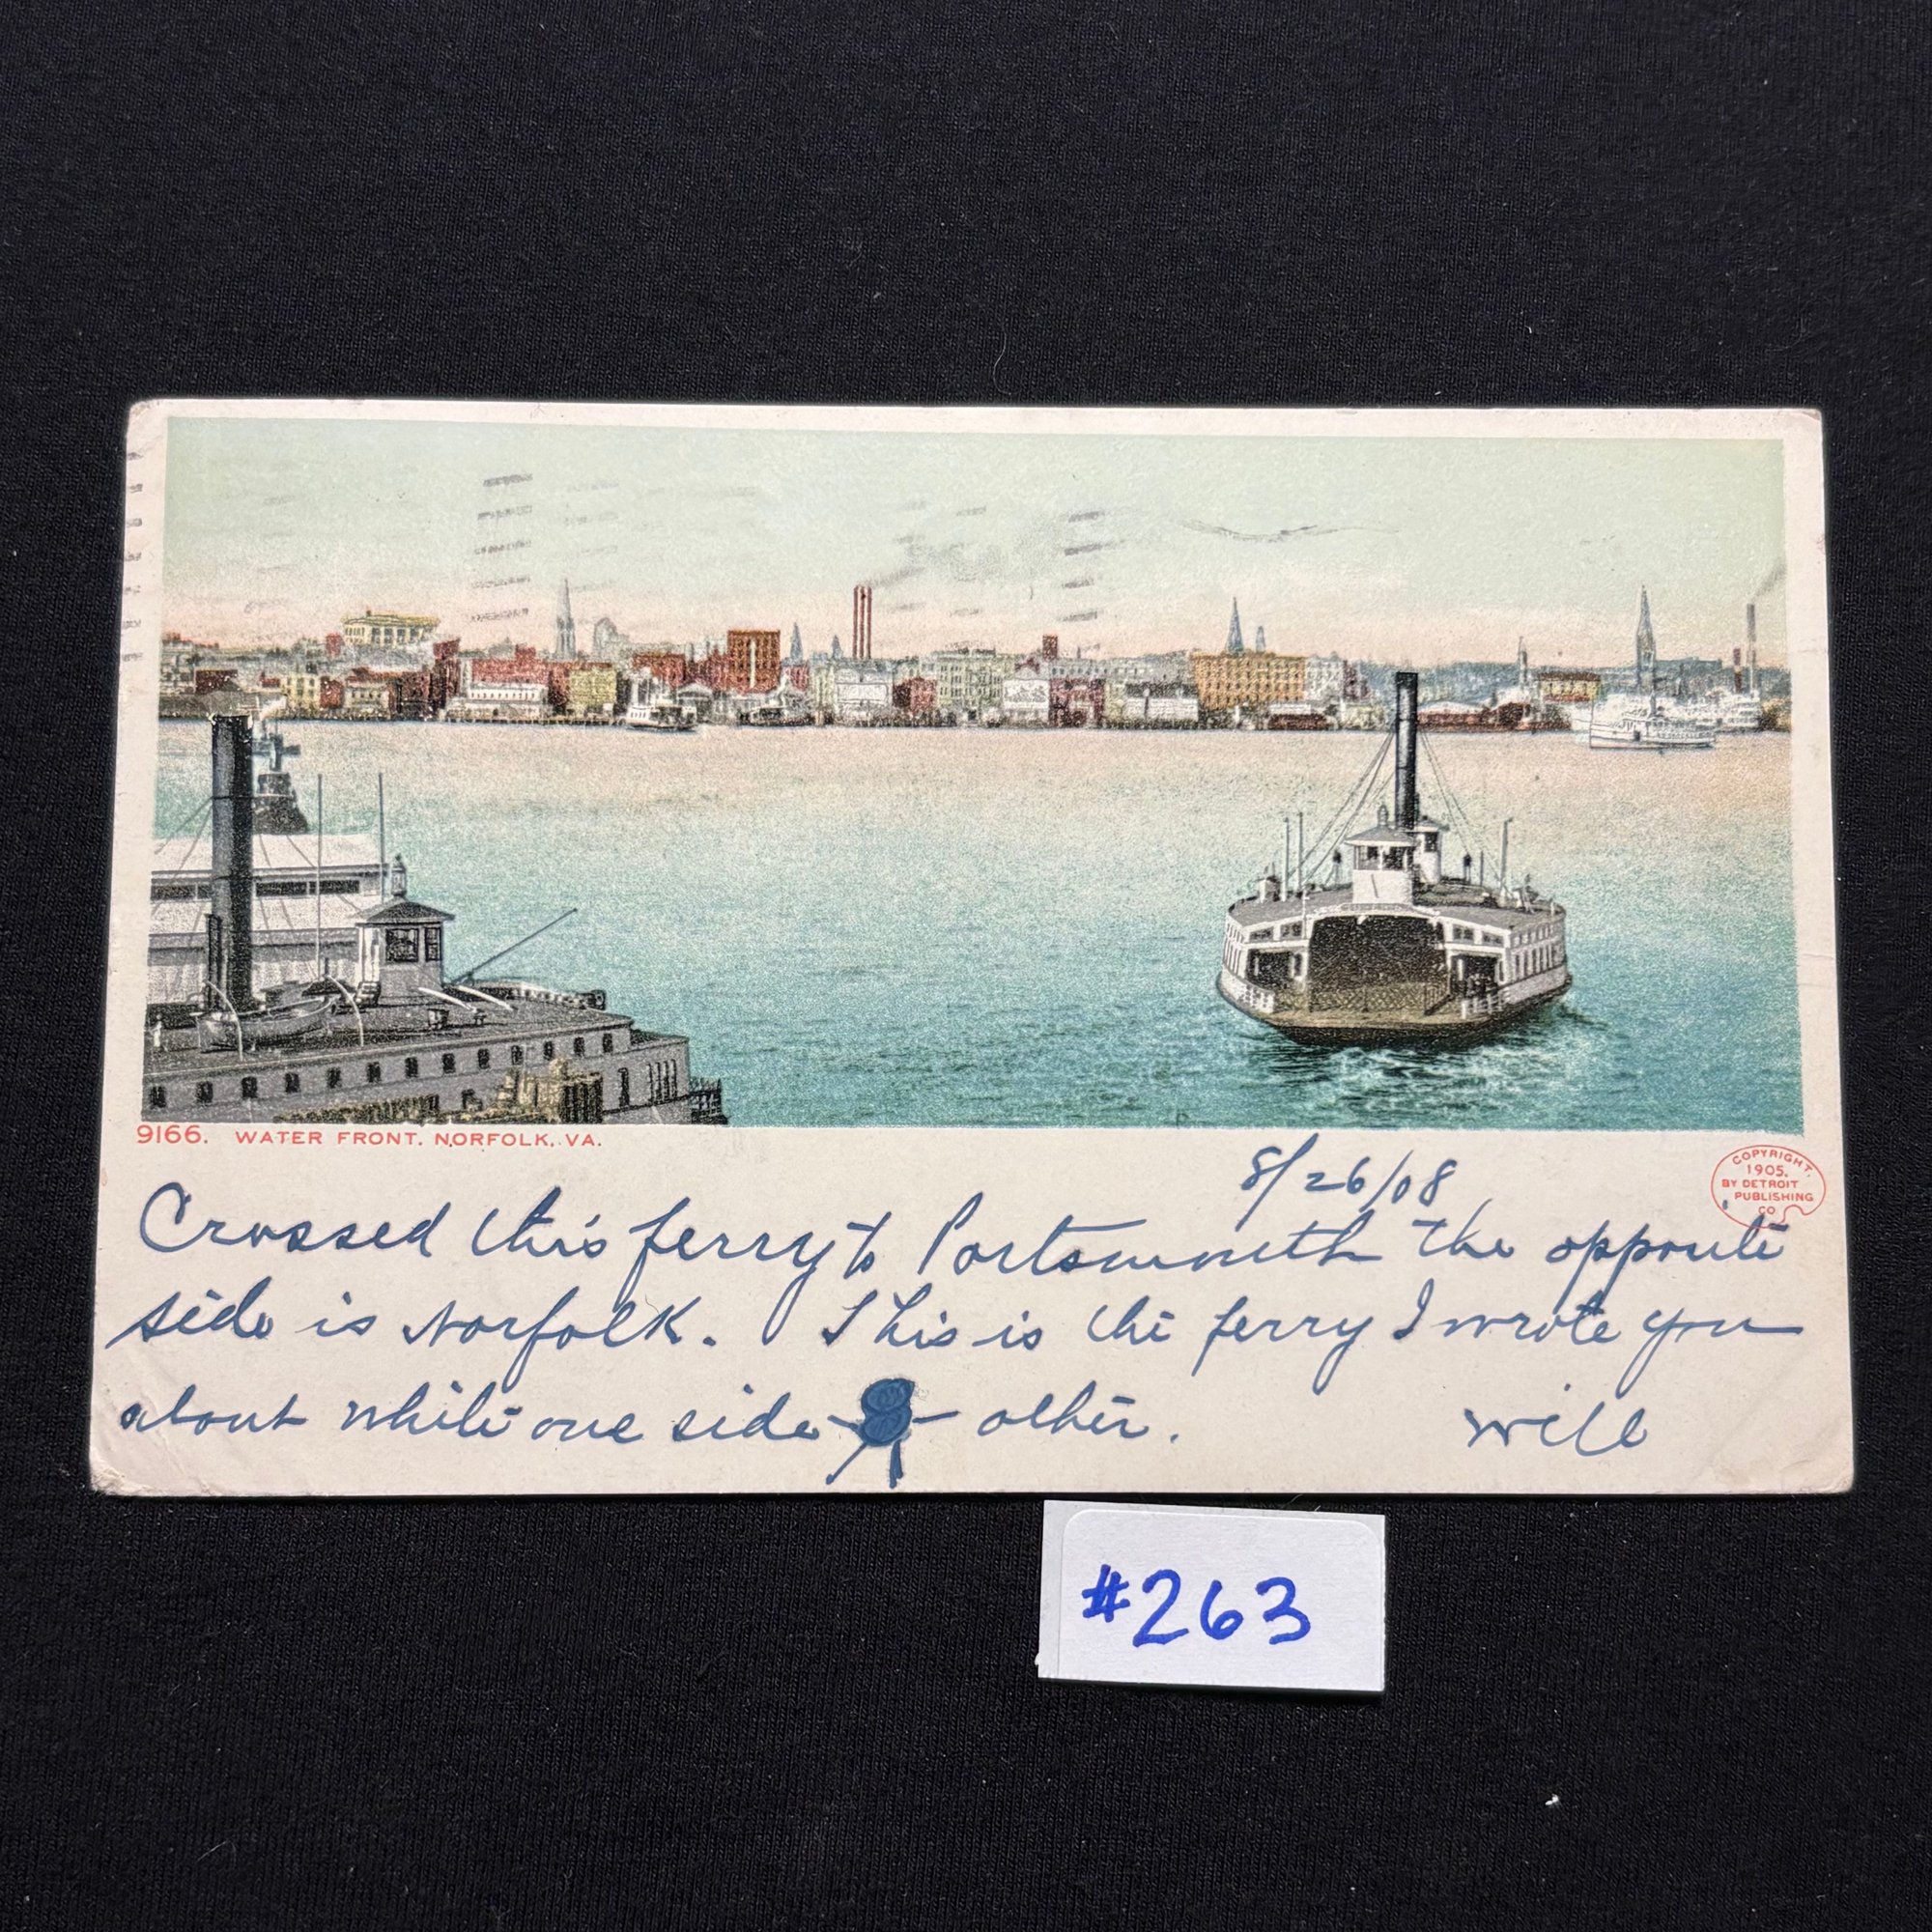 9166. WATER FRONT. NORFOLK. VA.
COPYRIGHT,
1905,
BY DETROIT
PUBLISHING
CO
8/26/08
Crossed this ferry to Portsmouth the opposite
side is Norfolk. This is the ferry I wrote you
about while one side other.
Will
#263